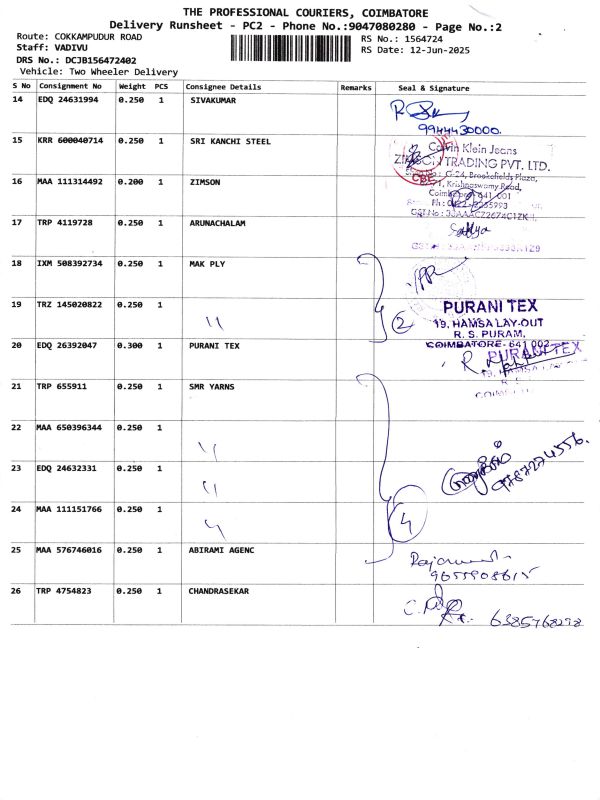 THE PROFESSIONAL COURIERS, COIMBATORE
Delivery Runsheet - PC2 - Phone No.:9047080280 - Page No.:2
Route: COKKAMPUDUR ROAD
Staff: VADIVU
DRS No.: DCJB156472402
Vehicle: Two Wheeler Delivery
RS No.: 1564724
RS Date: 12-Jun-2025
S No Consignment No Weight PCS Consignee Details Remarks Seal & Signature
14 EDQ 24631994 0.250 1 SIVAKUMAR
9944430000.
15 KRR 600040714 0.250 1 SRI KANCHI STEEL
Calvin Klein Jeans
TRADING PVT. LTD.
CBE
G-24, Brookefields Plaza,
16 MAA 111314492 0.200 1 ZIMSON
Krishnaswamy Road,
641 001
17 TRP 4119728 0.250 1 ARUNACHALAM
18 IXM 508392734 0.250 1 MAK PLY
19 TRZ 145020822 0.250 1 〃
2
PURANI TEX
19, HAMSA LAY-OUT
R. S. PURAM,
COIMBATORE- 641 002
20 EDQ 26392047 0.300 1 PURANI TEX
PURANI TEX
21 TRP 655911 0.250 1 SMR YARNS
22 MAA 650396344 0.250 1 〃
23 EDQ 24632331 0.250 1 〃
9787274556.
24 MAA 111151766 0.250 1 〃
4
25 MAA 576746016 0.250 1 ABIRAMI AGENC
9655908615
26 TRP 4754823 0.250 1 CHANDRASEKAR
6385768298